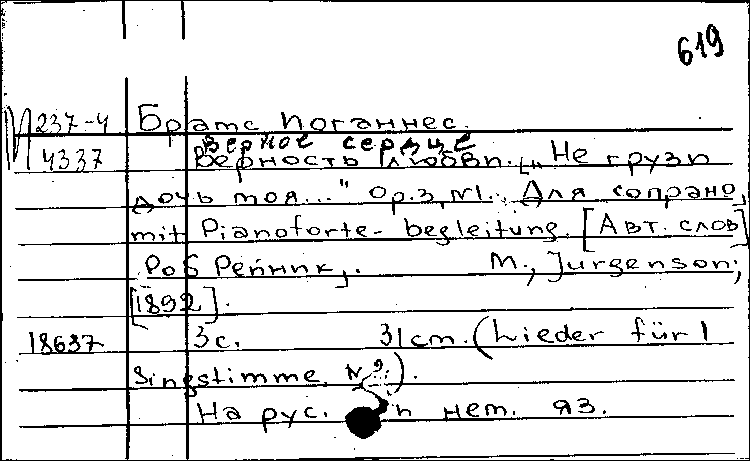 619
М 237-4 Брамс Иоганнес.
Верное сердце
4337 Верность любви. [„Не грузи
дочь моя..." Op.3, N1. Для сопрано,
mit Pianoforte-begleitung. [Авт. слов]
Роб Рейник]. М., Jurgenson,
[1892].
18637 3с. 31cm. (Lieder für 1
Singstimme. N 2.).
На рус. и нем. яз.